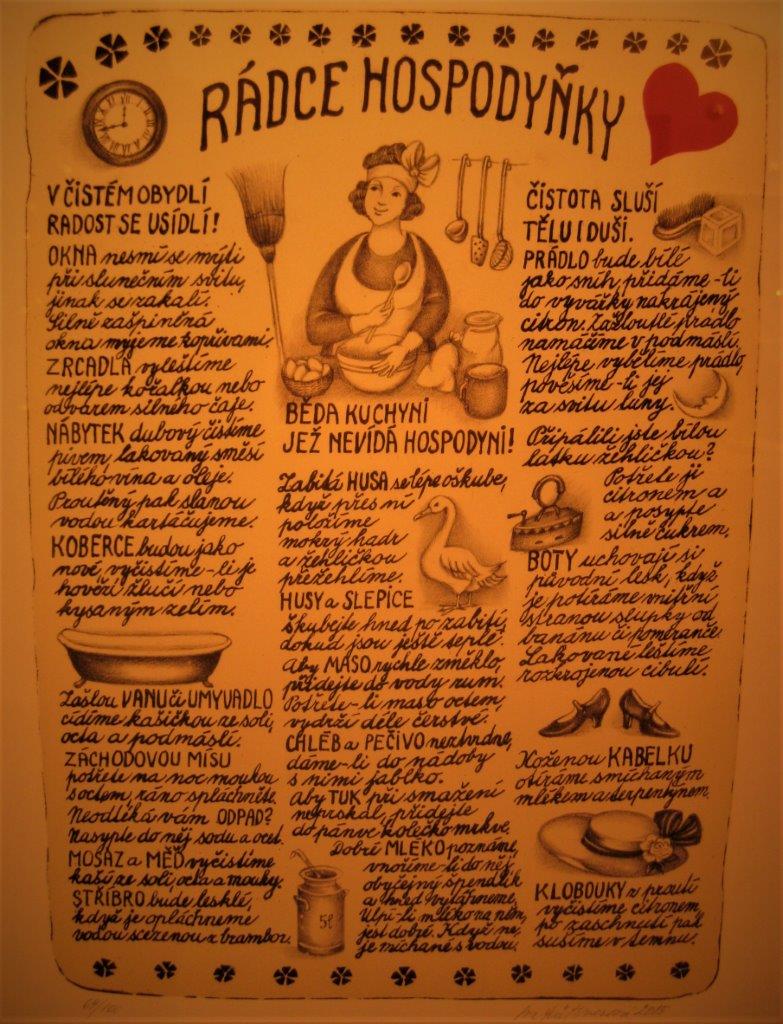 RÁDCE HOSPODYŇKY
V ČISTÉM OBYDLÍ
RADOST SE USÍDLÍ!
OKNA nesmí se mýti
při slunečním svitu,
jinak se zakalí.
Silně zašpiněná
okna myjeme kopřivami.
ZRCADLA vyleštíme
nejlépe kořalkou nebo
odvarem silného čaje.
NÁBYTEK dubový čistíme
pivem, lakovaný směsí
bílého vína a oleje.
Proutěný pak slanou
vodou kartáčujeme.
KOBERCE budou jako
nové, vyčistíme-li je
hovězí žlučí nebo
kysaným zelím.
Zašlou VANU či UMYVADLO
cídíme kašičkou ze soli,
octa a podmáslí.
ZÁCHODOVOU MÍSU
potřete na noc moukou
s octem, ráno spláchněte.
Neodtéká vám ODPAD?
Nasypte do něj sodu a ocet.
MOSAZ a MĚĎ vyčistíme
kaší ze soli, octa a mouky.
STŘÍBRO bude lesklé,
když je opláchneme
vodou scezenou z brambor.
BĚDA KUCHYNI
JEŽ NEVÍDÁ HOSPODYNI!
Zabitá HUSA se lépe oškube,
když přes ni
položíme
mokrý hadr
a žehličkou
přežehlíme.
HUSY a SLEPICE
škubejte hned po zabití,
dokud jsou ještě teplé.
Aby MASO rychle změklo,
přidejte do vody rum.
Potřete-li maso octem,
vydrží déle čerstvé.
CHLÉB a PEČIVO neztvrdne,
dáme-li do nádoby
s nimi jablko.
Aby TUK při smažení
neprskal, přidejte
do pánve kolečko mrkve.
Dobré MLÉKO poznáme,
vnoříme-li do něj
obyčejný špendlík
a hned vytáhneme.
Ulpí-li mléko na něm,
jest dobré. Když ne,
je míchané s vodou.
5l
ČISTOTA SLUŠÍ
TĚLU I DUŠI.
PRÁDLO bude bílé
jako sníh, přidáme-li
do vyvářky nakrájený
citron. Zažloutlé prádlo
namáčíme v podmáslí.
Nejlépe vybělíme prádlo,
pověsíme-li jej
za svitu luny.
Připálili jste bílou
látku žehličkou?
Potřete ji
citronem a
a posypte
silně cukrem.
BOTY uchovají si
původní lesk, když
je potíráme vnitřní
stranou slupky od
banánu či pomeranče.
Lakované leštíme
rozkrojenou cibulí.
Koženou KABELKU
otíráme smíchaným
mlékem a terpentýnem.
KLOBOUKY z proutí
vyčistíme citronem,
po zaschnutí pak
sušíme v temnu.